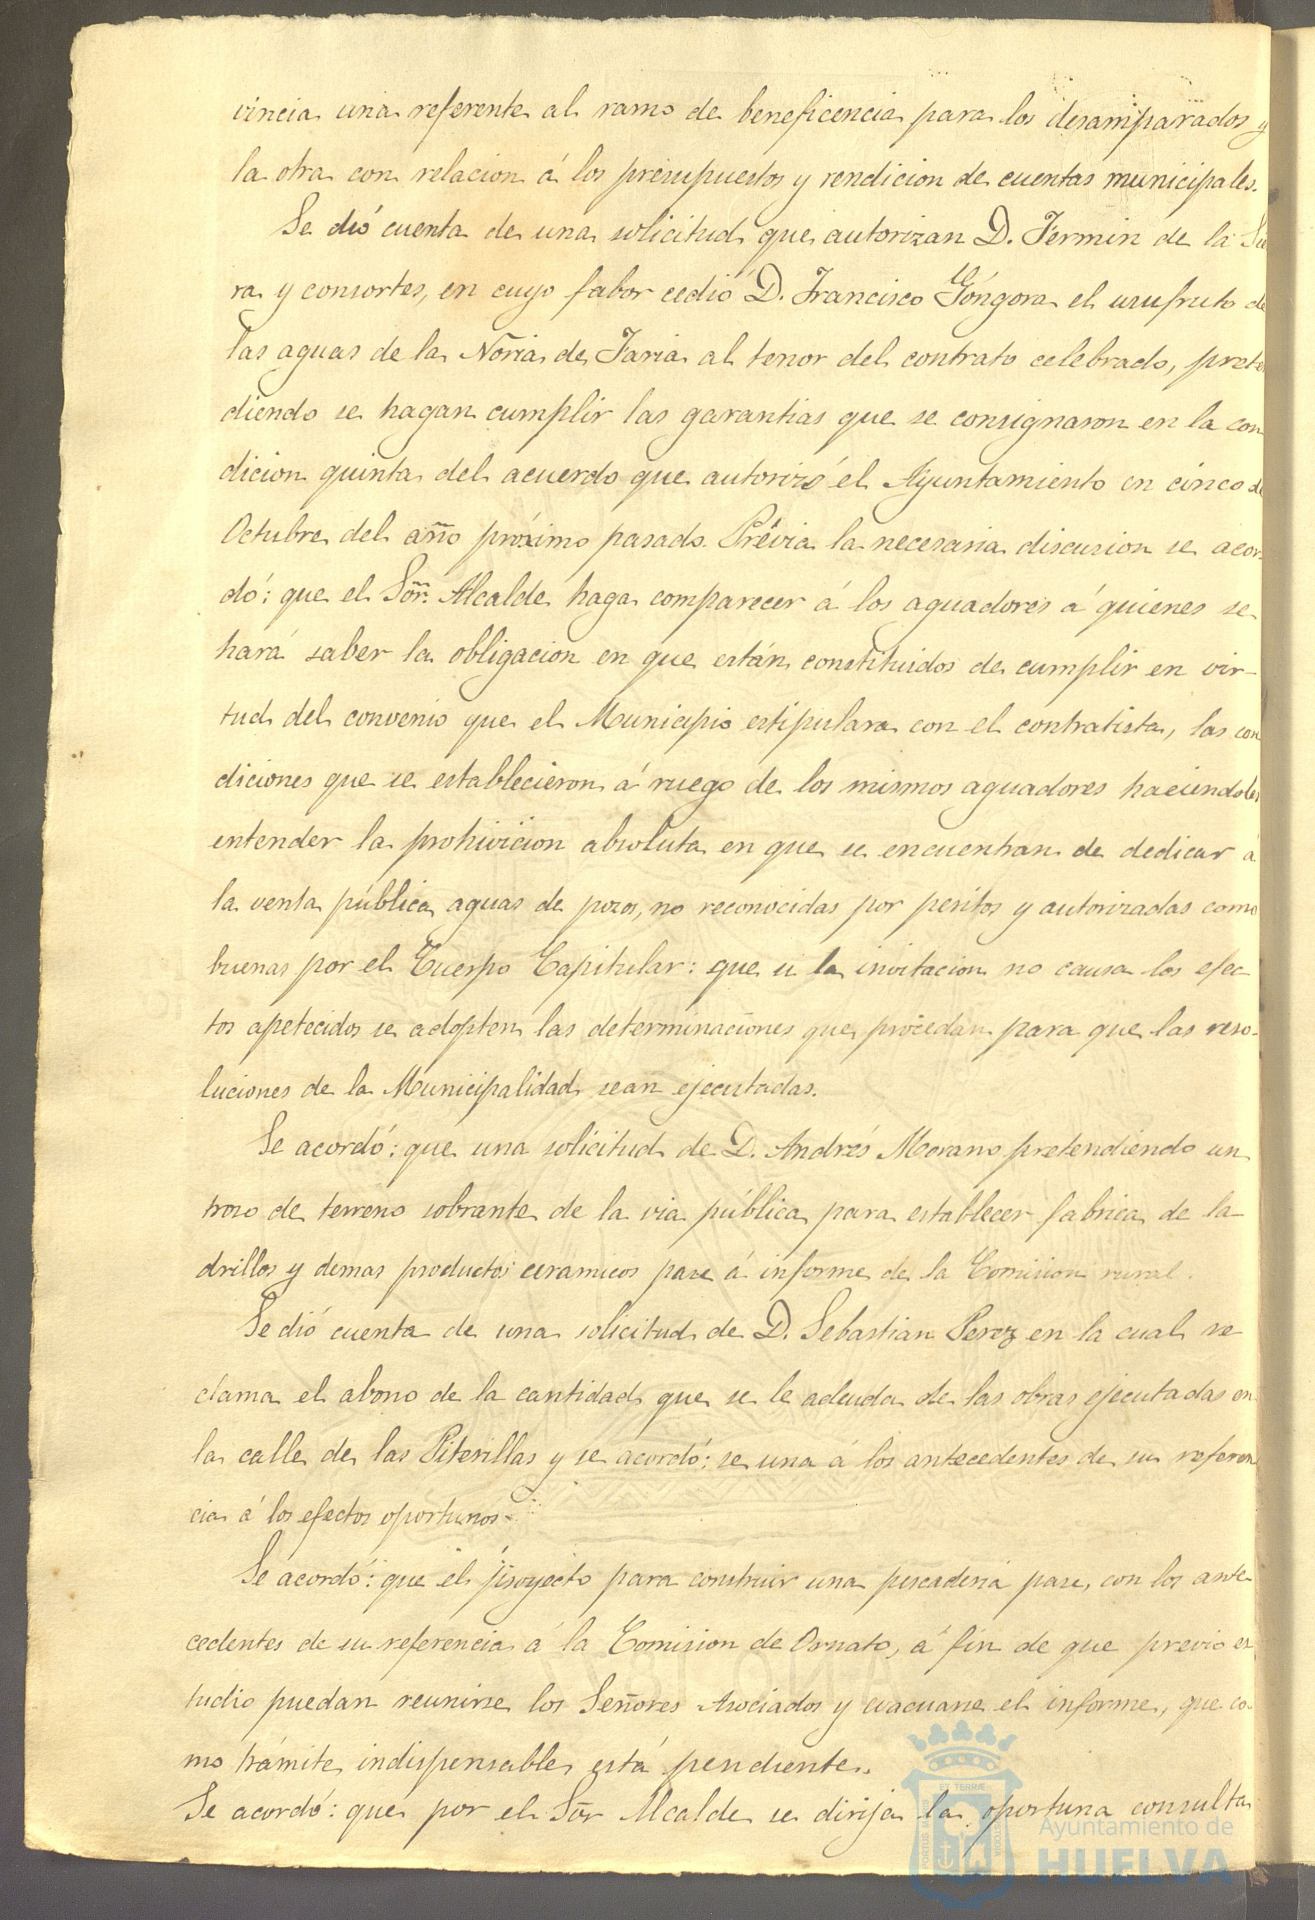 vincia una referente al ramo de beneficencia para los desamparados y
la otra con relacion á los presupuestos y rendicion de cuentas municipales.
Se dió cuenta de una solicitud que autorizan D. Fermin de la Sie
ra y consortes, en cuyo fabor cedió D. Francisco Góngora el usufruto de
las aguas de la Noria de Faria al tenor del contrato celebrado, preten
diendo se hagan cumplir las garantias que se consignaron en la con
dicion quinta del acuerdo que autorizó el Ayuntamiento en cinco de
Octubre del año próximo pasado. Prévia la necesaria discusion se acor
dó: que el Sõr. Alcalde haga comparecer á los aguadores á quienes se
hará saber la obligacion en que están constituidos de cumplir en vir-
tud del convenio que el Municipio estipulara con el contratista, las con
diciones que se establecieron á ruego de los mismos aguadores haciendoles
entender la prohivicion absoluta en que se encuentran de dedicar á
la venta pública aguas de pozos, no reconocidas por peritos y autorizadas como
buenas por el Cuerpo Capitular: que si la invitacion no causa los efec
tos apetecidos se adopten las determinaciones que procedan para que las reso-
luciones de la Municipalidad sean ejecutadas.
Se acordó: que una solicitud de D. Andrés Morano pretendiendo un
trozo de terreno sobrante de la via pública para establecer fabrica de la
drillos y demas productos cerámicos pase á informe de la Comision rural.
Se dió cuenta de una solicitud de D. Sebastian Perez en la cual re
clama el abono de la cantidad que se le adeuda de las obras ejecutadas en
la calle de las Piterillas y se acordó: se una á los antecedentes de su referen
cia á los efectos oportunos.
Se acordó: que el proyecto para construir una pescaderia pase, con los ante
cedentes de su referencia á la Comision de Ornato, á fin de que previo es
tudio puedan reunirse los Señores Asociados y evacuarse el informe, que co
mo trámite indispensable está pendiente.
Se acordó: que por el Sõr Alcalde se dirija la oportuna consulta
Ayuntamiento de
HUELVA